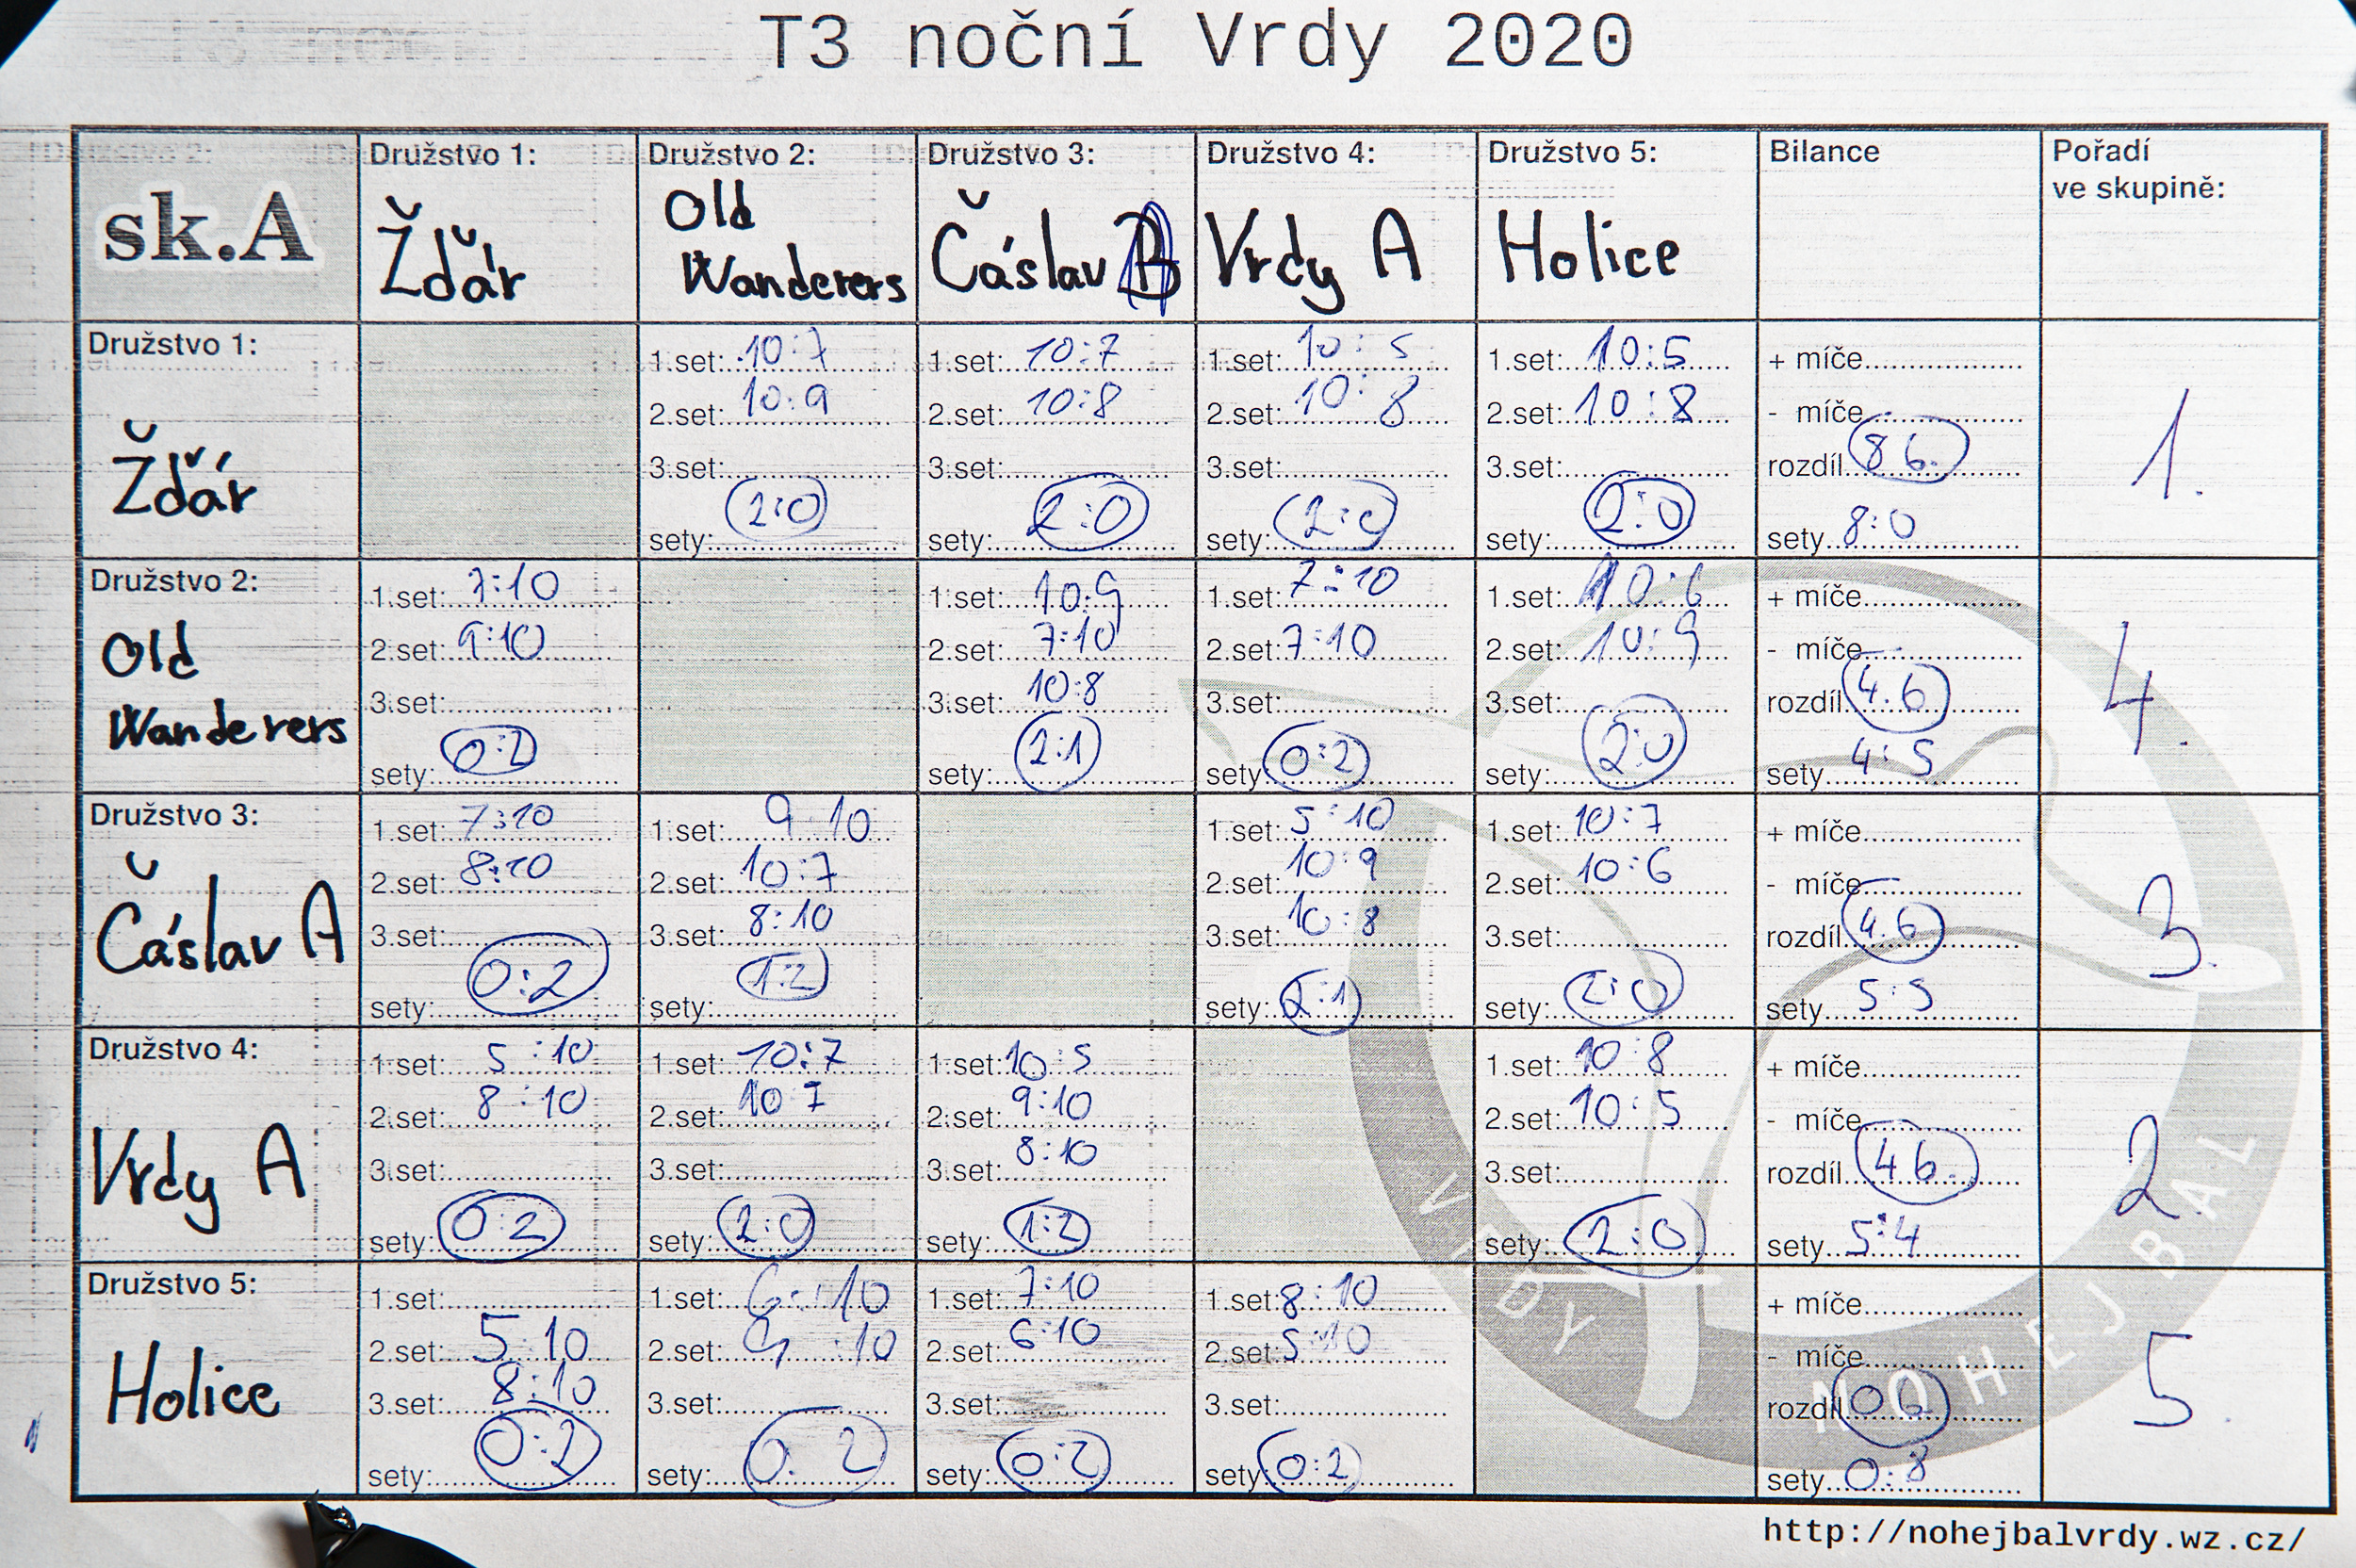 T3 noční Vrdy 2020
sk.A
Družstvo 1:
Žďár
Družstvo 2:
Old
Wanderers
Družstvo 3:
Čáslav
Družstvo 4:
Vrdy A
Družstvo 5:
Holice
Bilance
Pořadí
ve skupině:
Družstvo 1:
Žďár
1.set: 10:7
2.set: 10:9
3.set:
sety: 2:0
1.set: 10:7
2.set: 10:8
3.set:
sety: 2:0
1.set: 10:5
2.set: 10:8
3.set:
sety: 2:0
1.set: 10:5
2.set: 10:8
3.set:
sety: 2:0
+ míče
- míče
rozdíl 8 b.
sety 8:0
1.
Družstvo 2:
Old
Wanderers
1.set: 7:10
2.set: 9:10
3.set:
sety: 0:2
1.set: 10:9
2.set: 7:10
3.set: 10:8
sety: 2:1
1.set: 7:10
2.set: 7:10
3.set:
sety: 0:2
1.set: 10:6
2.set: 10:9
3.set:
sety: 2:0
+ míče
- míče
rozdíl 4.b
sety 4:5
4.
Družstvo 3:
Čáslav A
1.set: 7:10
2.set: 8:10
3.set:
sety: 0:2
1.set: 9 10
2.set: 10:7
3.set: 8:10
sety: 1:2
1.set: 5:10
2.set: 10:9
3.set: 10:8
sety: 2:1
1.set: 10:7
2.set: 10:6
3.set:
sety: 2:0
+ míče
- míče
rozdíl 4.b
sety 5:5
3.
Družstvo 4:
Vrdy A
1.set: 5:10
2.set: 8:10
3.set:
sety: 0:2
1.set: 10:7
2.set: 10:7
3.set:
sety: 2:0
1.set: 10:5
2.set: 9:10
3.set: 8:10
sety: 1:2
1.set: 10:8
2.set: 10:5
3.set:
sety: 2:0
+ míče
- míče
rozdíl 4 b.
sety 5:4
2
Družstvo 5:
Holice
1.set:
2.set: 5:10
3.set: 8:10
sety: 0:2
1.set: 6:10
2.set: 9:10
3.set:
sety: 0:2
1.set: 7:10
2.set: 6:10
3.set:
sety: 0:2
1.set: 8:10
2.set: 5:10
3.set:
sety: 0:2
+ míče
- míče
rozdíl 0 b
sety 0:8
5.
VRDY NOHEJBAL
http://nohejbalvrdy.wz.cz/